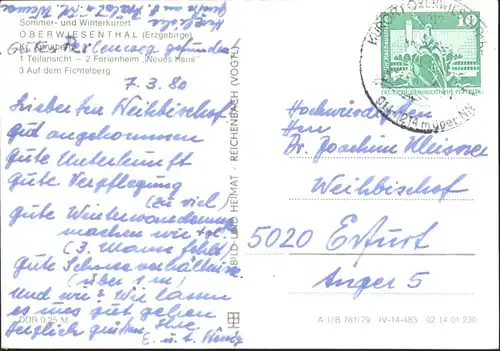 Sommer- und Winterkurort
OBERWIESENTHAL (Erzgebirge)
Kr. Annaberg
1 Teilansicht – 2 Ferienheim „Neues Haus"
3 Auf dem Fichtelberg
7.3.80
Lieber Herr Weihbischof
gut angekommen
gute Unterkunft
gute Verpflegung
(zu viel)
gute Winterwanderung
machen wir
(3. Mann fehlt)
gute Schneeverhältnisse
(über 1 m)
und wir? Wir lassen
es uns gut gehen
Herzlich grüßen Ihre
E. u. K.
DDR 0,25 M
BILD UND HEIMAT · REICHENBACH (VOGTL)
10
DEUTSCHE DEMOKRATISCHE REPUBLIK
KURORT OBERWIESENTHAL
914-1214 m über NN
Hochwürdigen
Herrn
Dr. Joachim Kleisner
Weihbischof
5020 Erfurt
Anger 5
A 1/B 781/79 IV-14-483 02 14 01 230